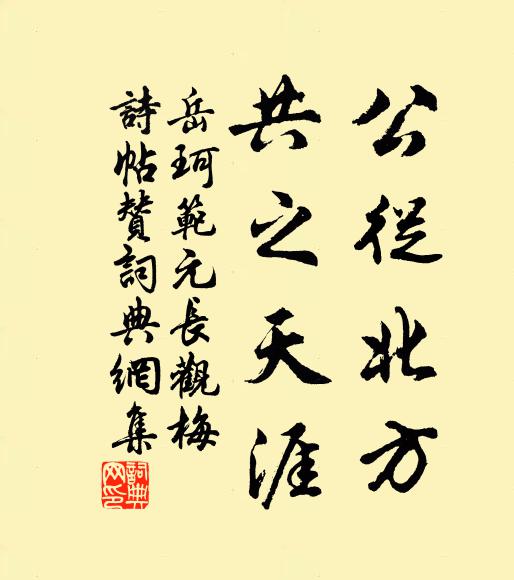 公從北方
共之天涯
岳珂範元長觀梅
詩帖贊詞典網集
詞典网印